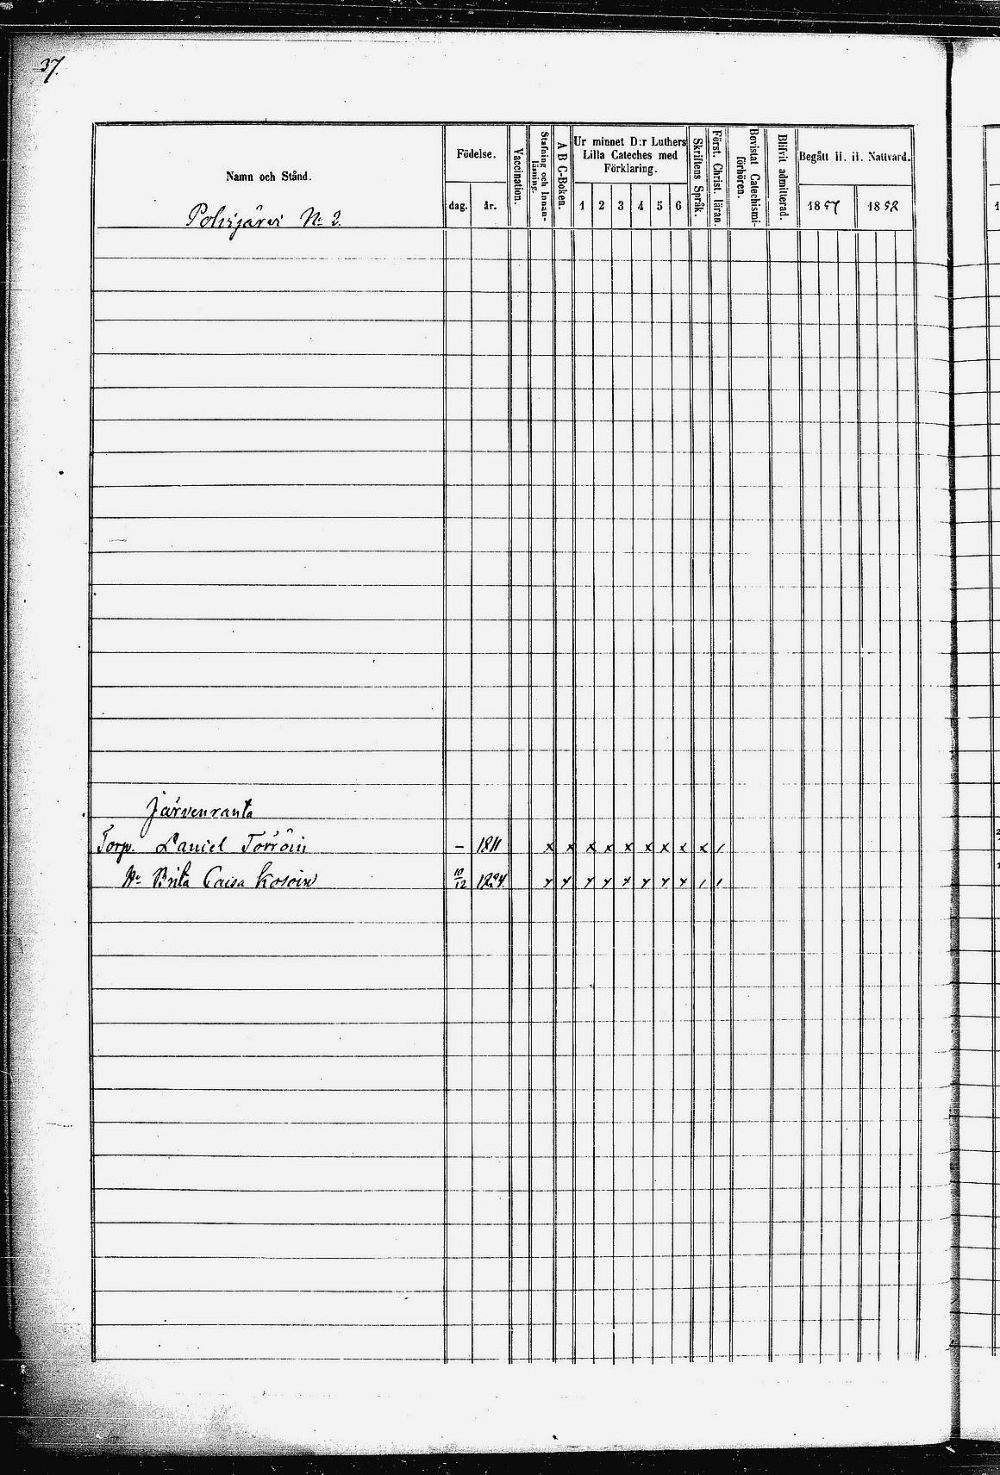 37.
Namn och Stånd.
Födelse.
dag.
år.
Vaccination.
Stafning och Innan-
läsning.
A B C-Boken.
Ur minnet D:r Luthers
Lilla Cateches med
Förklaring.
1 2 3 4 5 6
Skriftens Språk.
Först. Christ. läran.
Bevistat Catechismi-
förhören.
Blifvit admitterad.
Begått H. H. Nattvard.
1857 1858
Pohisjärvi No 2.
Järvenranta
Torp. Daniel Törröin – 1811 x x x x x x x x x /
Hu Brita Caisa Kosoin 10/12